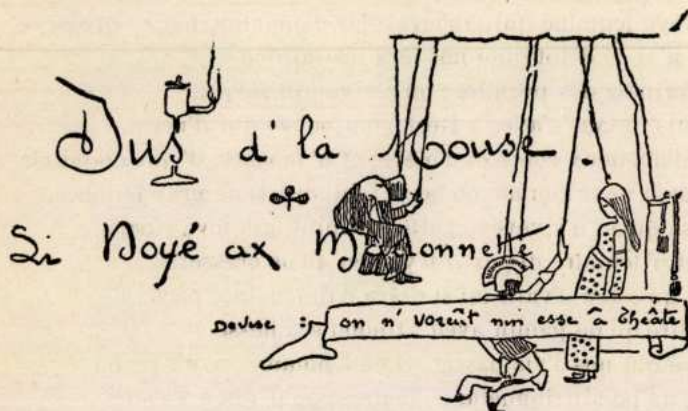 Dus d'la Mouse
Li Noyé ax Marionnette
Devise :- on n' voreût nin esse â théâte